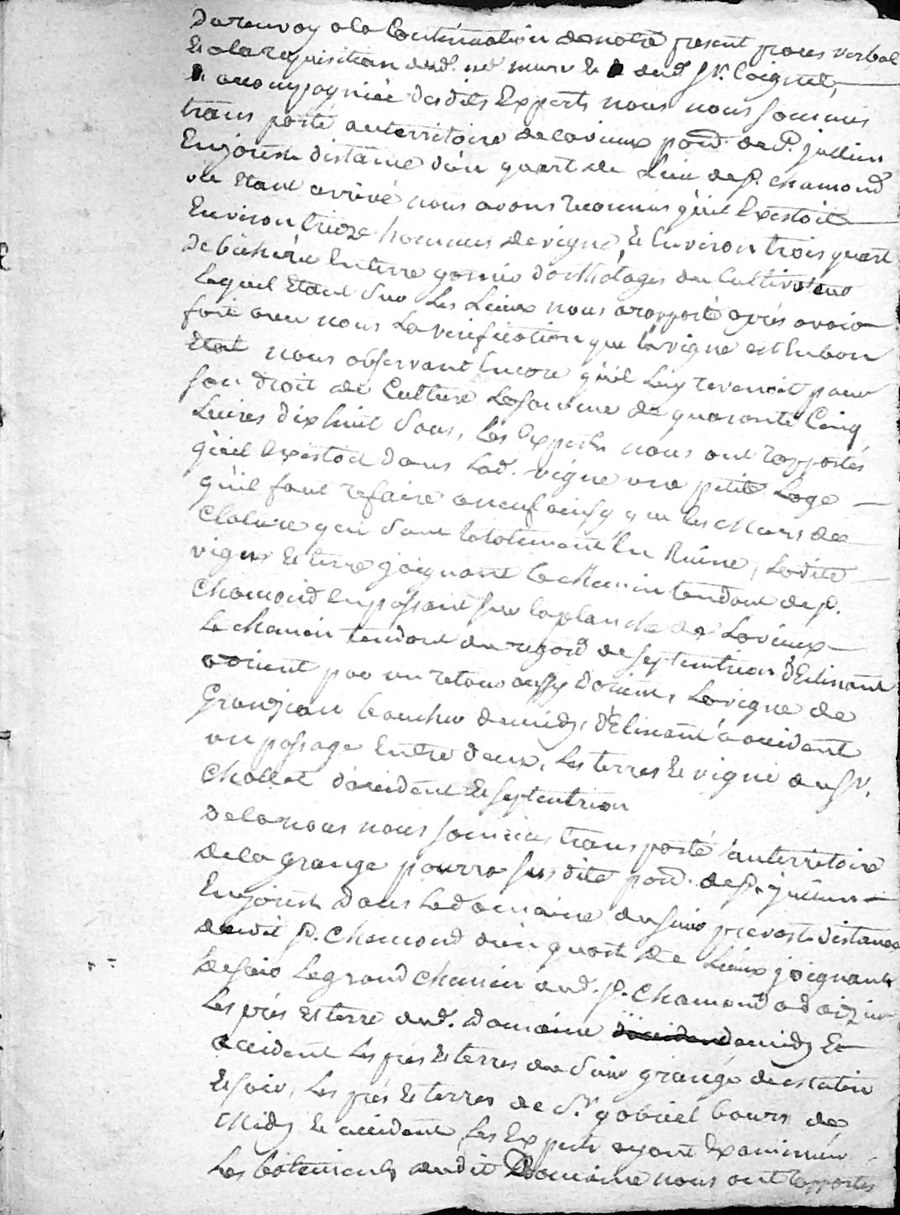 Du renvoy a la Continuation de notre present proces verbal
Et a la requisition dud. me et dud. Sr. Coignet,
accompagnié desdits Experts nous nous sommes
transporté au territoire de la vieux parr. de St. jullien
En jorest distance d'un quart de Lieu de St. chamond
ou Etant arrivé nous avons reconnus quil Existoit
Environ treize hommes de vigne et Environ trois quart
de bicherée En terre garnie d'orthelages du Cultivateur
Lequel Etant Sur Les Lieux nous a raporté après avoir
fait avec nous La verification que la vigne est En bon
Etat nous observant Encore quil Luy revenoit pour
son droit de Culture La somme de quarante Cinq
Livres dix huit Sous, Les Experts nous ont rapportés
quil Existoit dans Lad. vigne une petite Loge
quil faut refaire a neuf ainsy que les Murs de
Cloture qui sont totalement En Ruine, Ladite
vigne Et terre joignant le chemin tendant de St.
Chamond En passant sur la planche de Lavieux
Le chemin tendant du de septentrion d'Elinant
a orient par un retour aussy d'orient, La vigne de
Granjean boucher de midy, d'Elinant a occident
un passage Entre deux, Les terres Et vigne du Sr.
Chollet d'occident Et septentrion
De la nous nous sommes transporté au territoire
de la grange pourra susdite parr. de St. jullien
En jorest Dans Le domaine du Sieur prevost distance
dudit St. Chamond d'un quart de Lieux joignant
de soir Le grand Chemin dud. St. Chamond a
Les prés Et terre dud. Domaine de midy Et
occident Les prés Et terres du Sieur grangé de Matin
Et soir, Les prés Et terres de Sr. gabriel bours de
Midy Et occident Les Experts ayant Examinée
Les batiments dudit Domaine nous ont rapportés